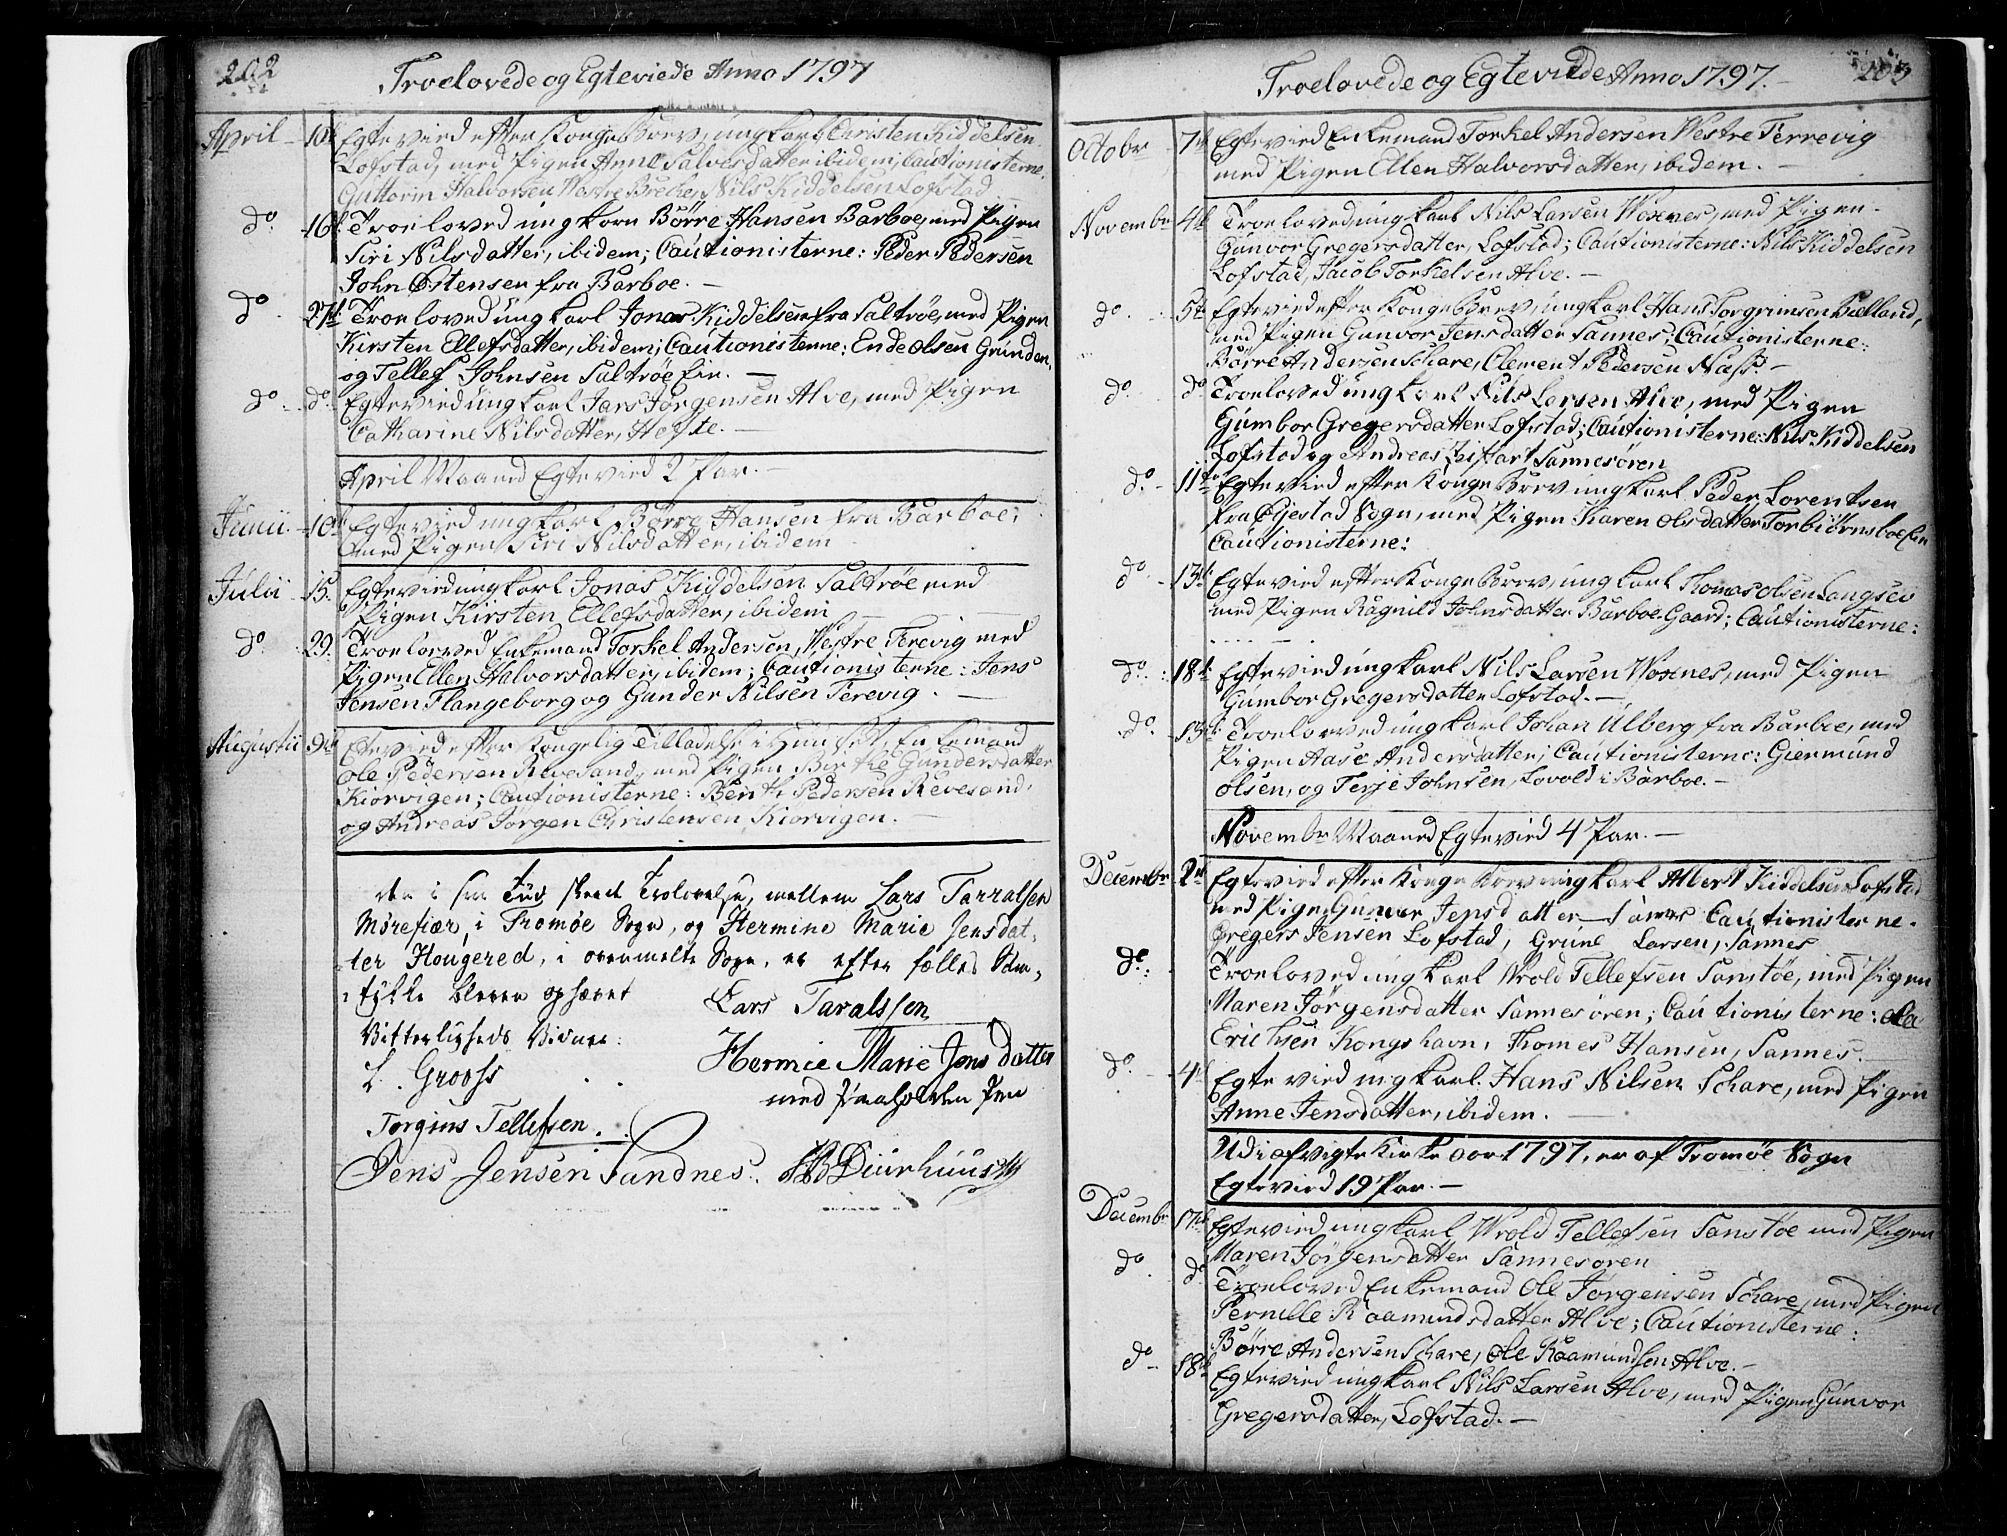 202
Troelovede og Egteviede Anno 1797
April 10de Egtevied efter Konge Brev, ungkarl Christen Kiddelsen
Lofstad, med Pigen Anne Salvesdatter ibidem, Cautionisterne:
Guttorm Halvorsen Westre Brekke, Nils Kiddelsen Lofstad
do. 16de Troeloved ungkarn Börre Hansen Barboe, med Pigen
Siri Nilsdatter, ibidem; Cautionisterne: Peder Pedersen
John Ostensen fra Barboe. —
do 27de Troeloved ungkarl Jonas Kiddelsen fra Saltröe, med Pigen
Kirsten Ellefsdatter, ibidem; Cautionisterne: Ende Olsen Grunden,
og Tellef Johnsen Saltröe Eie. —
do. do. Egtevied ungkarl Jars Jörgensen Alve, med Pigen
Catharine Nilsdatter, Hofte. —
April Maaned Egtevied 2 Par. —
Junii 10de Egtevied ungkarl Börre Hansen fra Barboe,
med Pigen Siri Nilsdatter, ibidem
Julii 15. Egtevied ungkarl Jonas Kiddelsen Saltröe, med
Pigen Kirsten Ellefsdatter, ibidem
do. 29. Troelovved Enkemand Torkel Andersen, Westre Terevig med
Pigen Ellen Halvorsdatter, ibidem; Cautionisterne: Jens
Jensen Flangeborg og Gunder Nilsen Terevig. —
Augustii 9de Egtevied efter Kongelig Tilladelse i Huuset, Enkemand
Ole Pedersen Revesand, med Pigen Birthe Gundersdatter
Kiorvigen; Cautionisterne: Benth Pedersen Revesand,
og Andreas Jörgen Christensen Kiorvigen. —
Den i sin Tid skeed Trolovelse, mellem Lars Tarralsen
Mörefiær, i Tromöe Sogn, og Hermine Marie Jensdat-
ter Hougered, i ovenmelte Sogn, er efter fælles Sam-
tykke bleven ophævet
Lars Taralssen
Vitterligheds Vidner:
Hermie Marie Jens datter
L. Grooss
med paaholden Pen
Torgius Tellefsen.
Jens Jensen Sandnes. HB Duurhuus
203
Troelovede og Egteviede Anno 1797. —
Octobr 7de Egtevied Enkemand Torkel Andersen Westre Terrevig
med Pigen Ellen Halvorsdatter, ibidem. —
Novembr 4de Troeloved ungkarl Nils Larsen Woxnes, med Pigen
Gunvor Gregersdatter, Lofstad; Cautionisterne: Nils Kiddelsen
Lofstad, Jacob Torkelsen Alve. —
do. 5te Egtevied efter Konge Brev, ungkarl Hans Torgrimsen Bielland,
med Pigen Gunvor Jensdatter Sannes; Cautionisterne:
Börre Andersen Schare, Clement Pedersen Næss. —
do. do Troelovved ungkarl Nils Larsen Alve, med Pigen
Gumbor Gregersdatter Lofstad; Cautionisterne: Nils Kiddelsen
Lofstad og Andreas Sannesören
do. 11te Egtevied efter Konge Brev ungkarl Peder Lorentsen
fra Öjestad Sogn, med Pigen Karen Olsdatter Torbiörnsboe Eie
Cautionisterne:
do. 13de Egtevied efter Konge Brev, ungkarl Thomas Olsen Langsev
med Pigen Ragnild Johnsdatter Barboe Gaard; Cautionisterne:
do. 18de Egtevied ungkarl Nils Larsen Woxnes, med Pigen
Gumbor Gregersdatter Lofstad. —
do. 19de Troelovved ungkarl Johan Ulberg fra Barboe, med
Pigen Aase Andersdatter; Cautionisterne: Giermund
Olsen, og Terje Johnsen, Lovold i Barboe. —
Novembr Maaned Egtevied 4 Par. —
Decembr 2den Egtevied efter Konge Brev ungkarl Albert Kiddelsen Lofstad
med Pigen Gunvor Jensdatter — Sannes Cautionisterne.
Gregers Jensen Lofstad, Grune Larsen, Sannes
do: Troelovved ungkarl Wrold Tellefsen Sanstöe, med Pigen
Maren Jörgensdatter Sannesören; Cautionisterne: Ole
Erichsen Kongshavn, Thomes Hansen, Sannes.
do. 4de Egtevied ungkarl. Hans Nilsen Schare, med Pigen
Anne Jensdatter, ibidem. —
Udi afvigte Kirke aar 1797, er af Tromöe Sogn
Egtevied 19 Par. —
Decembr 17de Egtevied ungkarl Wrold Tellefsen Sanstöe med Pigen
Maren Jörgensdatter Sannesören
do. do. Troelovved Enkemand Ole Jörgensen Schare, med Pigen
Pernille Raamundsdatter Alve; Cautionisterne:
Börre Andersen Schare, Ole Raamundsen Alve. —
do 18de Egtevied ungkarl Nils Larsen Alve, med Pigen Gunvor
Gregersdatter, Lofstad. —